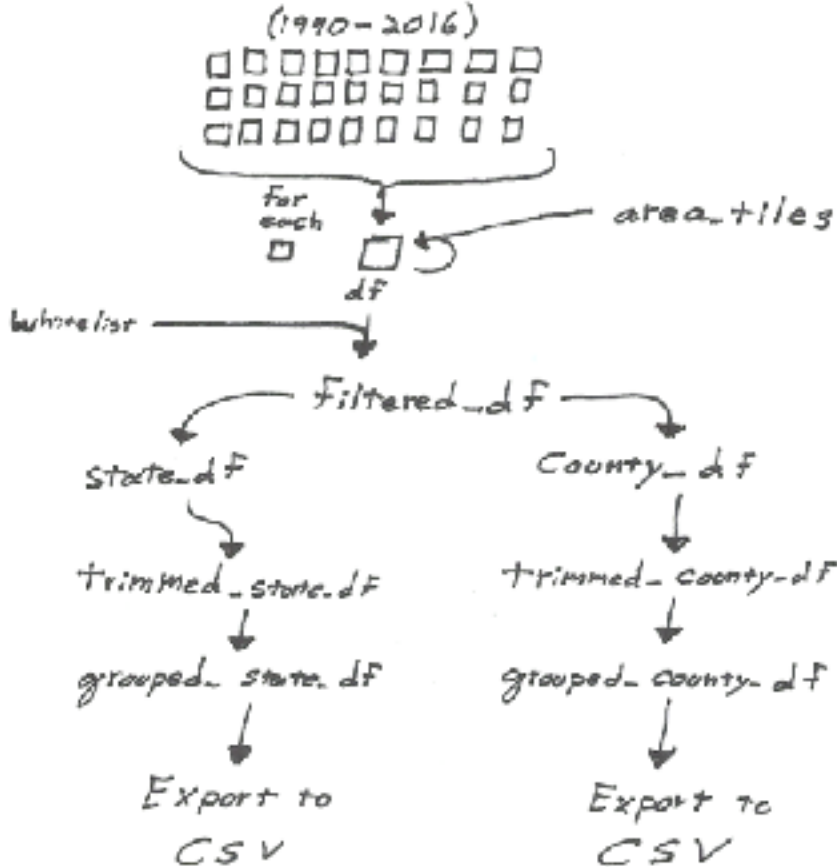 (1990-2016)
for
each
area_tiles
df
Whitelist
filtered_df
state_df
County_df
trimmed_state_df
trimmed_county_df
grouped_state_df
grouped_county_df
Export to
CSV
Export to
CSV